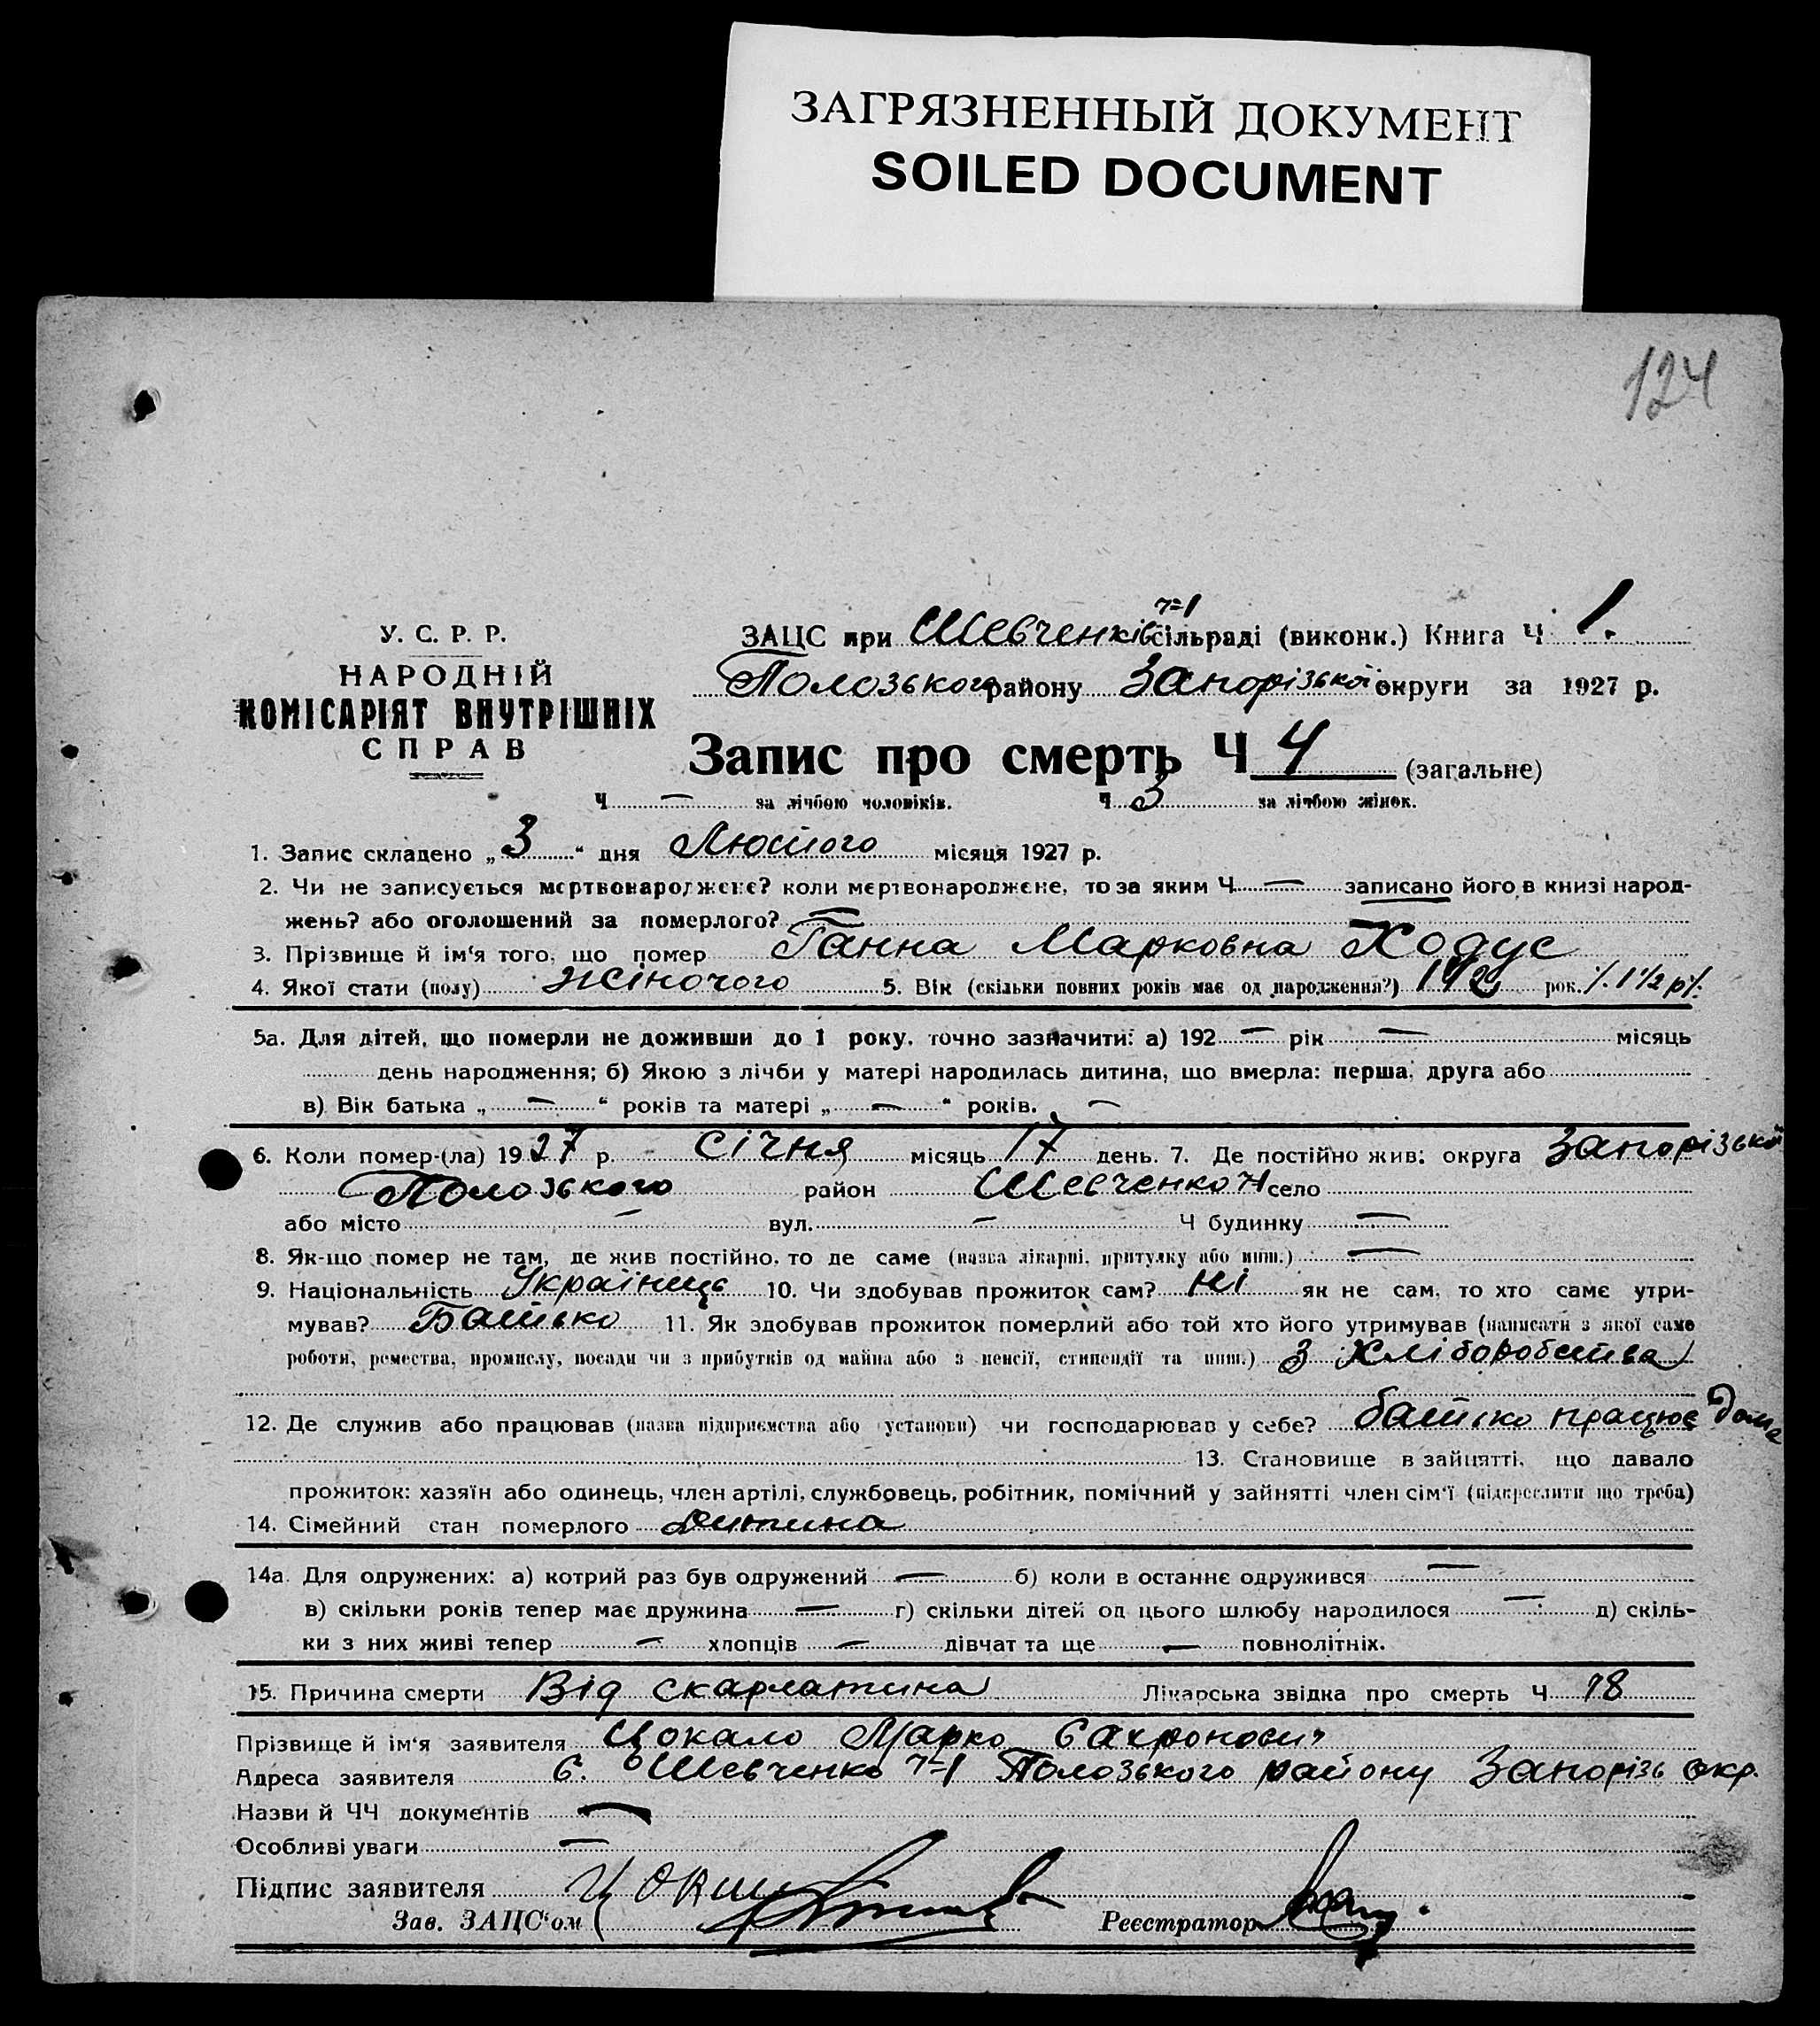 ЗАГРЯЗНЕННЫЙ ДОКУМЕНТ
SOILED DOCUMENT
124
У. С. Р. Р.
НАРОДНІЙ
КОМІСАРІЯТ ВНУТРІШНІХ
СПРАВ
ЗАЦС при Шевченків №1 сільраді (викон.) Книга Ч 1.
Полозького району Запорізької округи за 1927 р.
Запис про смерть Ч 4 (загальне)
Ч — за лічбою чоловіків. Ч 3 за лічбою жінок.
1. Запис складено „3“ дня Лютого місяця 1927 р.
2. Чи не записується мертвонароджене? коли мертвонароджене, то за яким Ч — записано його в книзі народ-
жень? або оголошений за померлого? —
3. Прізвище й ім'я того, що помер Ганна Марковна Ходус
4. Якої стати (полу) жіночого 5. Вік (скільки повних років має од народження?) 1 1/2 рок. /. 1 1/2 р/.
5а. Для дітей, що померли не доживши до 1 року, точно зазначити: а) 192 — рік — місяць
день народження; б) Якою з лічби у матері народилась дитина, що вмерла: перша, друга або
в) Вік батька „ — “ років та матері „ — “ років. —
6. Коли помер-(ла) 1927 р. січня місяць 17 день. 7. Де постійно жив: округа Запорізької
Полозького район Шевченко №1 село
або місто — вул. — Ч будинку —
8. Як-що помер не там, де жив постійно, то де саме (назва лікарні, притулку або инш.) —
9. Національність Українець 10. Чи здобував прожиток сам? ні як не сам, то хто саме утри-
мував? Батько 11. Як здобував прожиток померлий або той хто його утримував (написати з якої саме
роботи, ремества, промислу, посади чи з прибутків од майна або з пенсії, стипендії та инш.) З Хліборобства
12. Де служив або працював (назва підприємства або установи) чи господарював у себе? батько працює дома
13. Становище в зайнятті, що давало
прожиток: хазяїн або одинець, член артілі, службовець, робітник, помічний у зайнятті член сім'ї (підкреслити що треба)
14. Сімейний стан померлого Дитина
14а. Для одружених: а) котрий раз був одружений — б) коли в останнє одружився —
в) скільки років тепер має дружина — г) скільки дітей од цього шлюбу народилося — д) скіль-
ки з них живі тепер — хлопців — дівчат та ще — повнолітніх.
15. Причина смерти Від скарлатина Лікарська звідка про смерть Ч 18
Прізвище й ім'я заявителя Цокало Марко
Адреса заявителя с. Шевченко №1 Полозького району Запорізь окр.
Назви й ЧЧ документів —
Особливі уваги —
Підпис заявителя
Зав. ЗАЦС'ом
Реєстратор